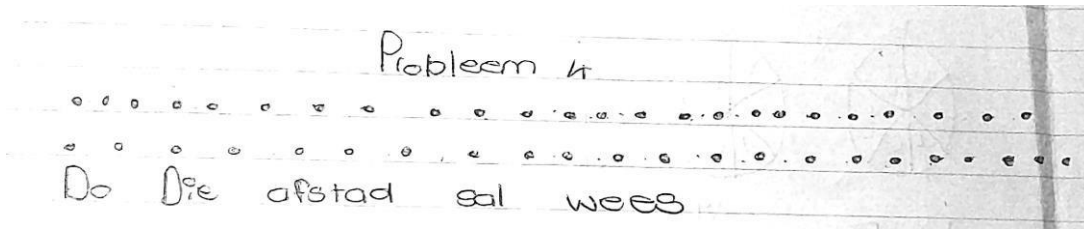 Probleem 4
Do Die afstad sal wees